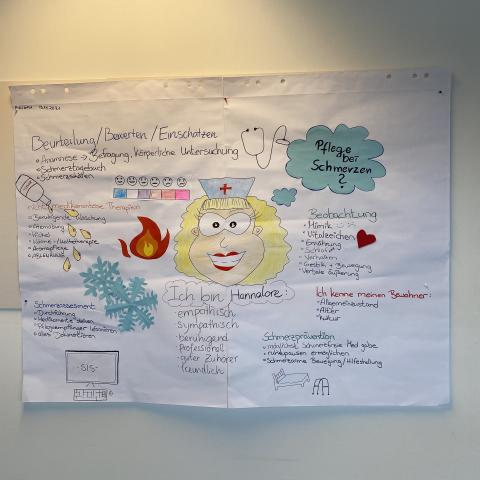 Beurteilung/Bewerten/Einschätzen
Anamnese → Befragung, Körperliche Untersuchung
Schmerztagebuch
Schmerzskalen
Pflege
bei
Schmerzen
?
nichtmedikamentöse Therapien
Beruhigende Waschung
Wickel
Beobachtung
Mimik
Vitalzeichen
Ernährung
Schlaf
Verhalten
Gestik + Bewegung
Verbale Äußerung
Ich bin Hannalore:
empathisch
sympathisch
beruhigend
professionell
guter Zuhörer
freundlich
Ich kenne meinen Bewohner:
Allgemeinzustand
Alter
Kultur
Schmerzassessment
Durchführung
alles Dokumentieren
SIS
Schmerzprävention
ruhepausen ermöglichen
Schmerzarme Bewegung/Hilfestellung